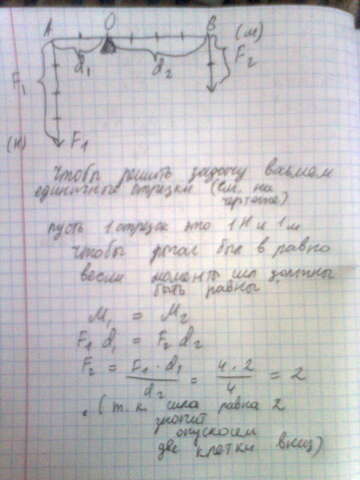 A O B (м)
F₁ d₁ d₂ F₂
(Н) F₁
Чтобы решить задачу возьмем
единичные отрезки (см. на
чертеже)
пусть 1 отрезок это 1 Н и 1 м
Чтобы рычаг был в равно
весии моменты сил должны
быть равны
M₁ = M₂
F₁ d₁ = F₂ d₂
F₂ = F₁ · d₁ / d₂ = 4 · 2 / 4 = 2
(т.к. сила равна 2
опускаем
две клетки вниз)